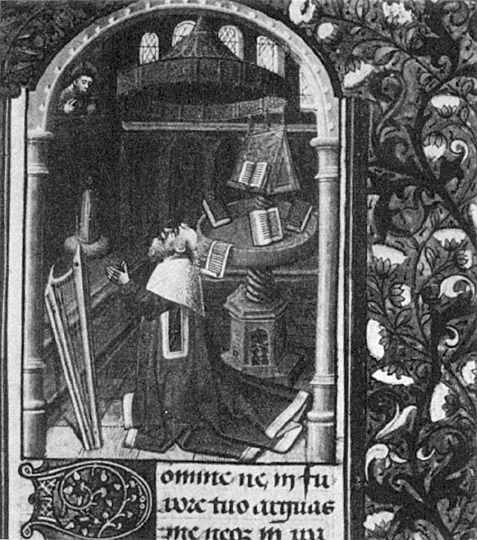 Domine ne, in fu
rore tuo arguas
me neqz in ira